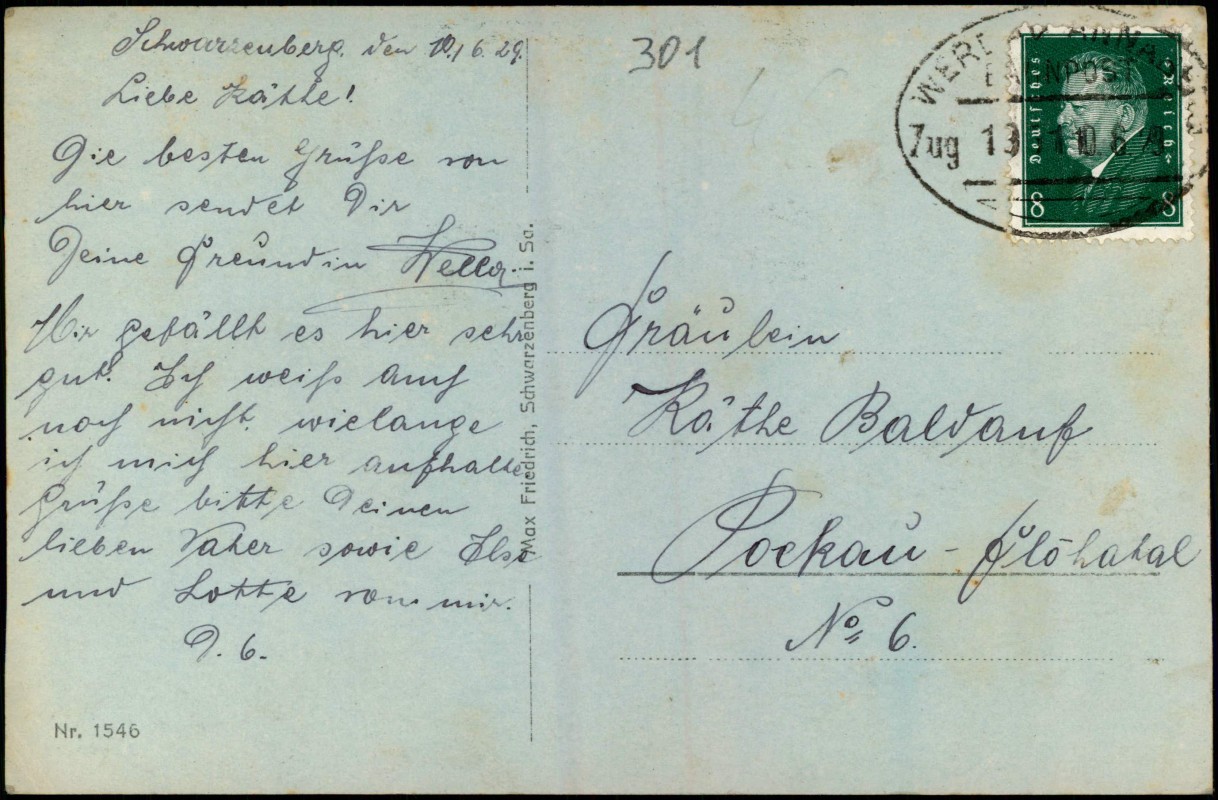 Schwarzenberg, den 10/6.29.
Liebe Käthe!
Die besten Grüße von
hier sendet Dir
Deine Freundin Wella.
Mir gefällt es hier sehr
gut. Ich weiß auch
noch nicht, wielange
ich mich hier aufhalte
Grüße bitte Deinen
lieben Vater sowie Else
und Lotte von mir.
D. O.
Nr. 1546
Max Friedrich, Schwarzenberg i. Sa.
301
BAHNPOST
Zug
Deutsches Reich
8 8
Fräulein
Käthe Baldauf
Pockau - Flöhatal
No 6.